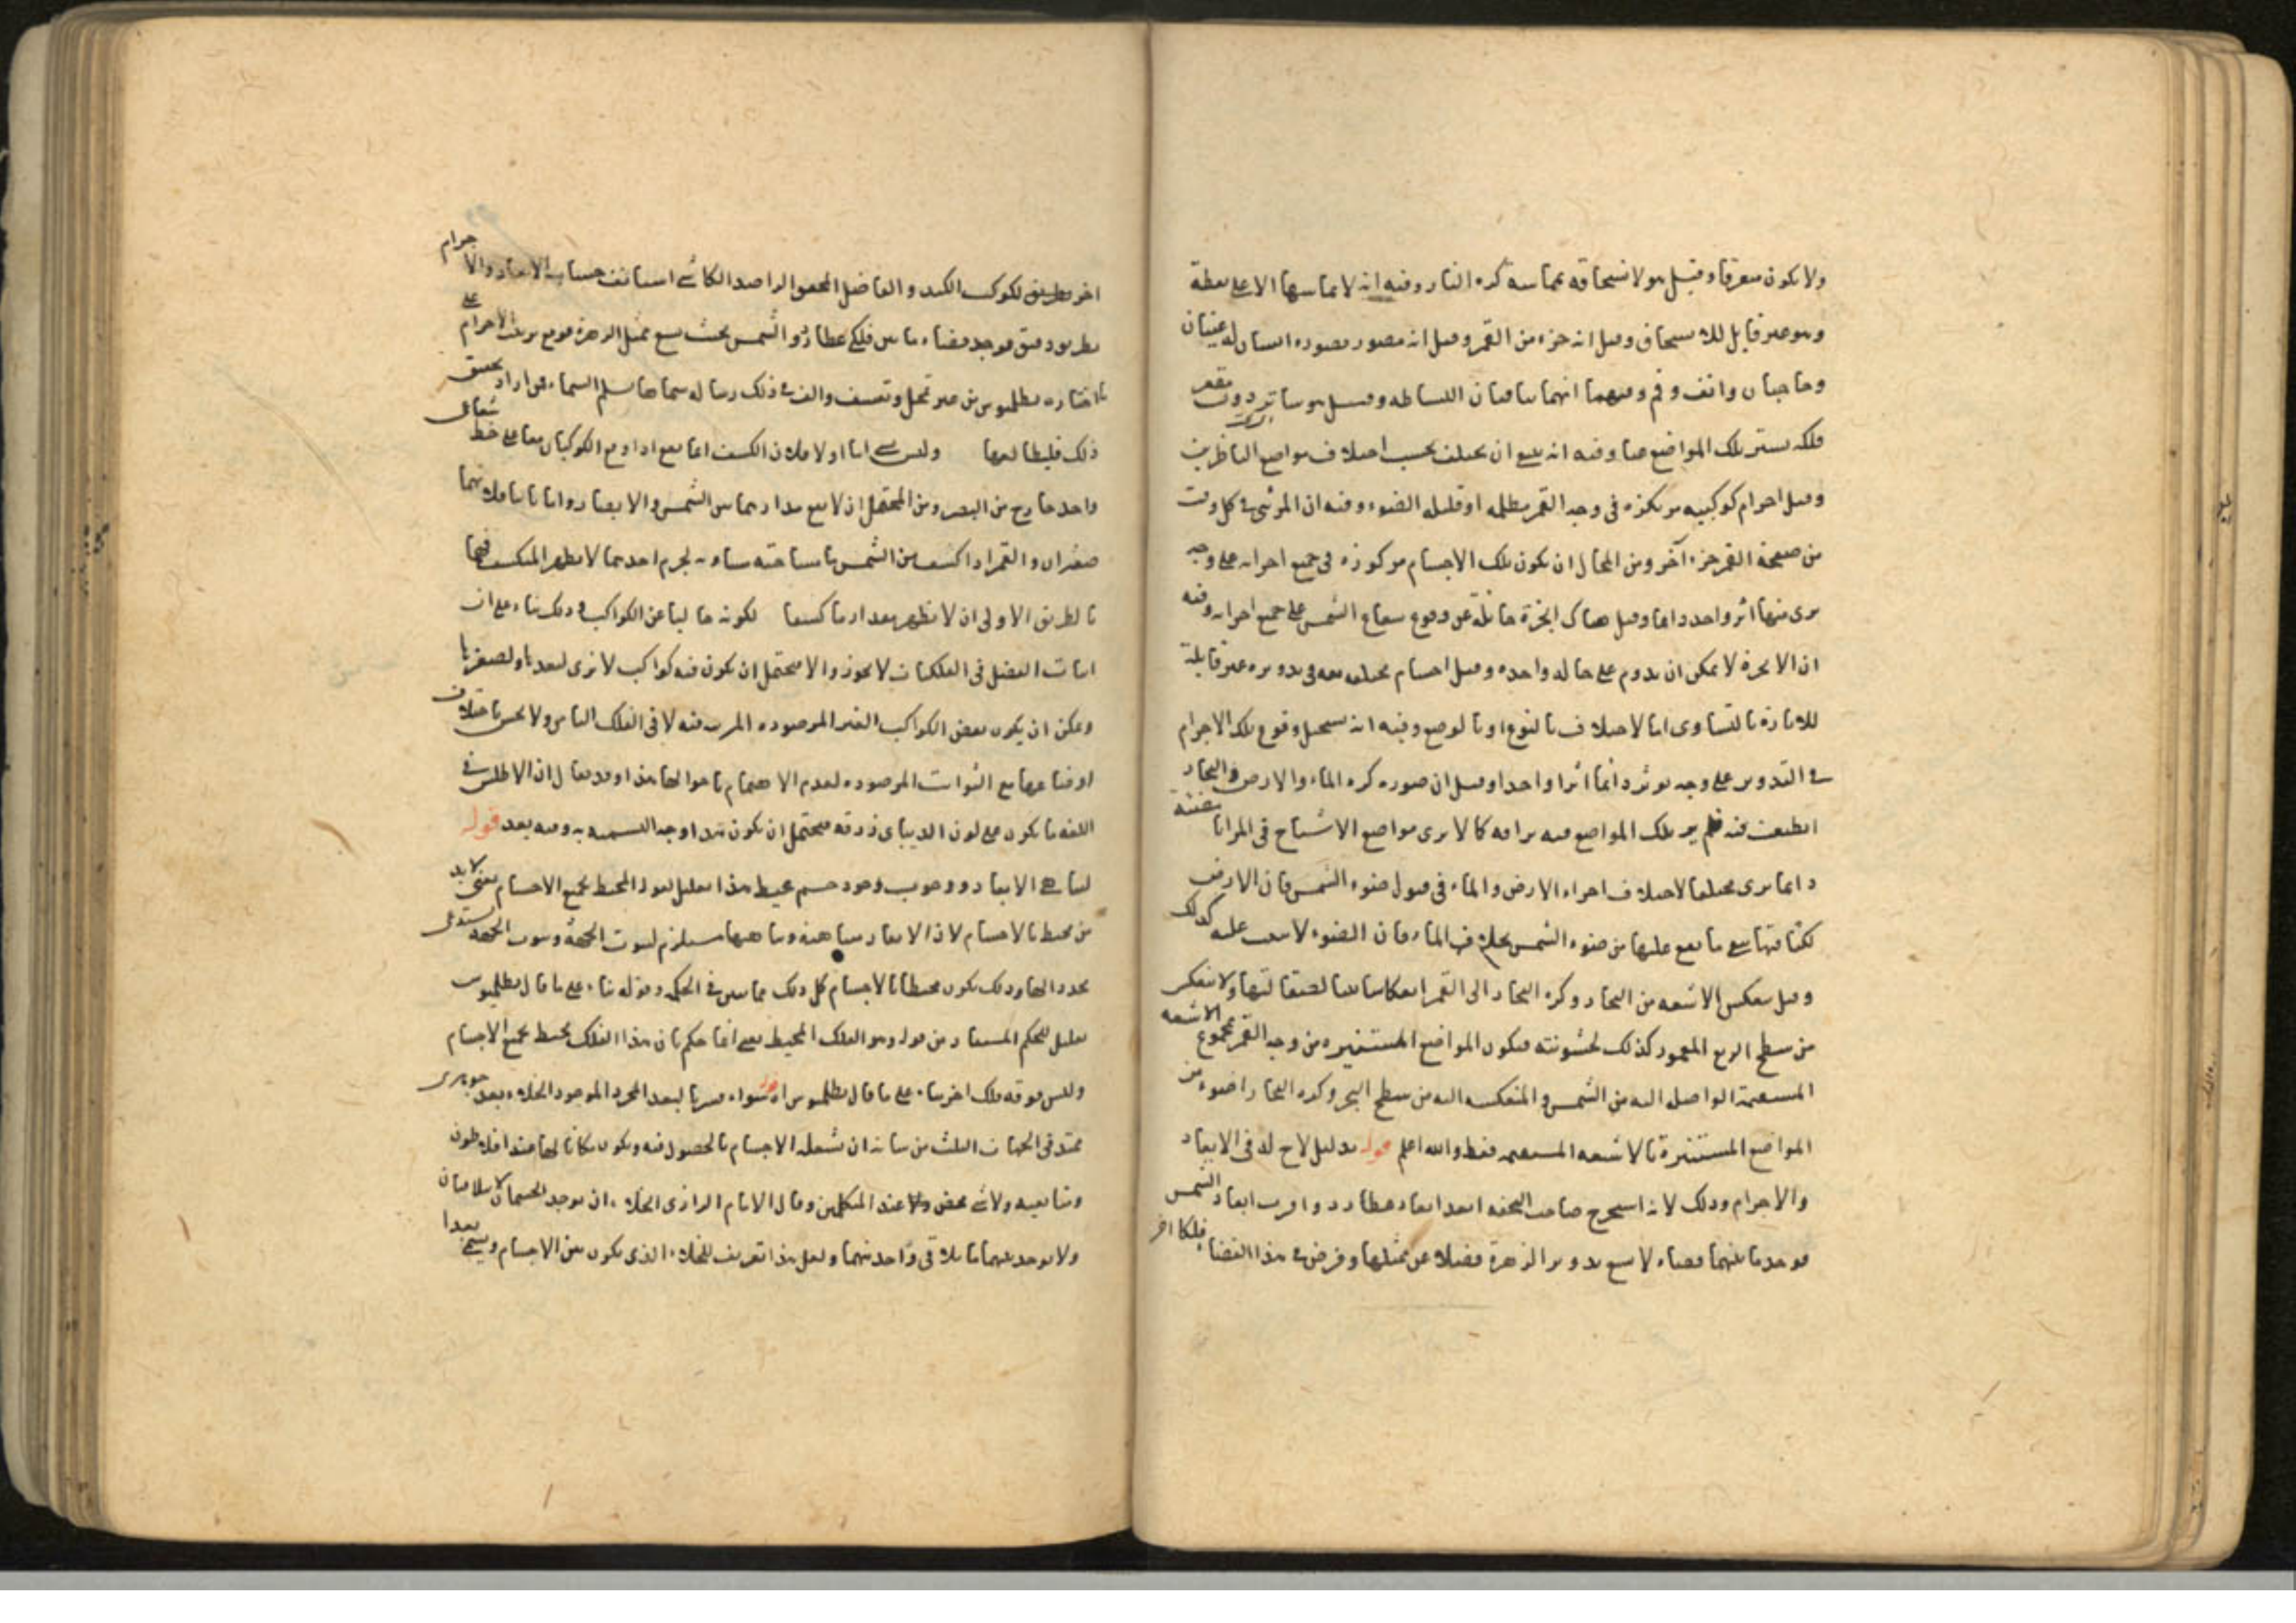 ولا يكون معرقا وقيل هو لانسحاقه بمماسة كرة النار وفيه انه لا يماسها الا على نقطة
وهو غير قابل للانسحاق وقيل انه جزء من القمر وقيل انه مصور بصورة انسان له عينان
وحاجبان وانف وفم وفيهما انهما ينافيان البساطة وقيل هو ساتر دون مقعر
فلكه يستر تلك المواضع عنا وفيه انه ينبغي ان يختلف بحسب اختلاف مواضع الناظرين
وقيل اجرام كوكبية مركوزة في وجه القمر مظلمة او قليلة الضوء وفيه ان المرئي في كل وقت
من صفحة القمر جزء آخر ومن المحال ان يكون تلك الاجسام مركوزة في جميع اجزائه على وجه
يرى منها اثر واحد دائما وقيل هناك ابخرة حائلة عن وقوع شعاع الشمس على جميع اجزائه وفيه
ان الابخرة لا يمكن ان يدوم على حالة واحدة وقيل اجسام مختلفة معه في تدويره غير قابلة
للانارة بالتساوي اما لاختلاف بالنوع او بالوضع وفيه انه يستحيل وقوع تلك الاجرام
في التدوير على وجه يؤثر دائما اثرا واحدا وقيل ان صورة كرة الماء والارض والبخار
انطبعت فيه فلم ير تلك المواضع منه براقة كما لا يرى مواضع الاشباح في المرايا
دائما يرى مختلفا لاختلاف اجزاء الارض والماء في قبول ضوء الشمس فان الارض
لكثافتها يبقى ما يقع عليها من ضوء الشمس بخلاف الماء فان الضوء لا يثبت عليه كذلك
وقيل ينعكس الاشعة من البحار وكرة البخار الى القمر انعكاسا بينا لصقالتها ولا ينعكس
من سطح الربع المعمور كذلك لخشونته فيكون المواضع المستنيرة من وجه القمر بمجموع الاشعة
المستقيمة الواصلة اليه من الشمس والمنعكسة اليه من سطح البحر وكرة البخار اضوء من
المواضع المستنيرة بالاشعة المستقيمة فقط والله اعلم قوله بدليل لاح له في الابعاد
والاجرام وذلك لانه استخرج صاحب التحفة ابعد ابعاد عطارد واقرب ابعاد الشمس
فوجد ما بينهما فضاء لا يسع تدوير الزهرة فضلا عن ممثلها وفرض في هذا الفضاء فلكا آخر
اخر بطريق لكوكب الكيد والفاضل المحقق الراصد الكاشي استأنف حساب الابعاد والاجرام
بطريق دقيق فوجد فضاء ما بين فلكي عطارد والشمس بحيث يسع ممثل الزهرة فوقع ترتيب الاجرام على
ما اختاره بطلميوس من غير تمحل وتعسف والف في ذلك رسالة سماها سلم السماء فمن اراد تحقيق
ذلك فليطالعها وليس بشيء اما اولا فلان الكسف انما يقع اذا وقع الكوكبان معا على خط شعاعي
واحد خارج من البصر ومن المحتمل ان لا يقع مدارهما بين الشمس والابصار واما ثانيا فلانهما
صغيران والقمر اذا كسف من الشمس ما مساحته مساوية لجرم احدهما لا يظهر المنكسف فيها
بالطريق الاولى ان لا يظهر بعد اذ ما كسفا لكونه خاليا عن الكواكب وذلك بناء على ان
اثبات الفضل في الفلكيات لا يجوز والا فيحتمل ان يكون فيه كواكب لا ترى لبعدها ولصغرها
ويمكن ان يكون بعض الكواكب الغير المرصودة المرئية فيه لا في الفلك الثامن ولا يحس باختلاف
اوضاعها مع الثوابت المرصودة لعدم الاهتمام باحوالها هذا وقد يقال ان الاطلس في
اللغة ما يكون على لون الديباى زرقة فيحتمل ان يكون هذا وجه التسمية به وفيه بعد قوله
لتناهي الابعاد ووجوب وجود جسم محيط هذا تعليل لقوله المحيط بجميع الاجسام يعني لا بد
من محيط بالاجسام لان الابعاد متناهية وتناهيها يستلزم ثبوت الجهة وثبوت الجهة يستدعي
محدد الجهات وذلك يكون محيطا بالاجسام كل ذلك مما بين في الحكمة وقوله بناء على ما قال بطلميوس
تعليل للحكم المستفاد من قوله وهو الفلك المحيط يعني انما حكم بان هذا الفلك محيط بجميع الاجسام
وليس فوقه فلك اخر بناء على ما قال بطلميوس اه قوله سواء فسرنا البعد المجرد الموجود الخلاء بعد جوهري
ممتد في الجهات الثلث من شانه ان تشغله الاجسام بالحصول فيه ويكون مكانا لها عند افلاطون
ومتابعيه ولا شيء محض عند المتكلمين وقال الامام الرازي الخلاء ان يوجد الجسمان لا يتلاقيان
ولا يوجد بينهما ما يلاقي واحد منهما ولعل هذا تعريف للخلاء الذي يكون بين الاجسام ويسمى بعدا